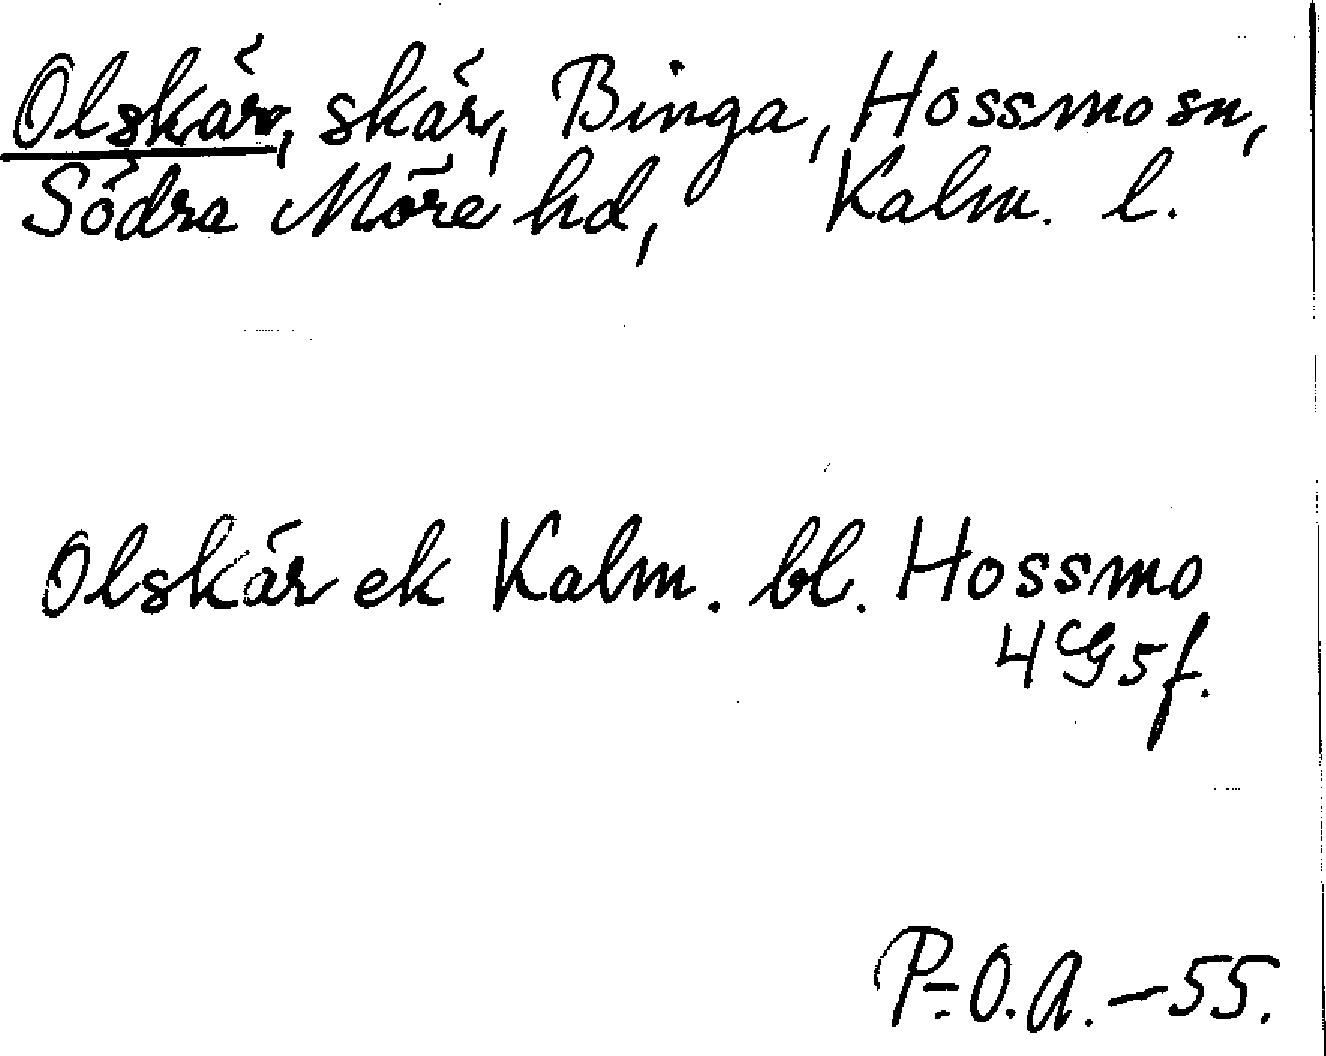 Olskär, skär, Binga, Hossmo sn,
Södra Möre hd, Kalm. l.
Olskär ek Kalm. bl. Hossmo
4G5f.
P-O.A. - 55.